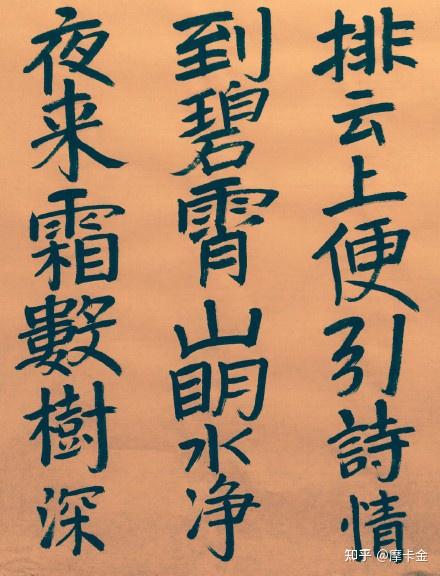 排云上便引詩情
到碧霄山明水净
夜来霜數樹深
知乎 @摩卡金